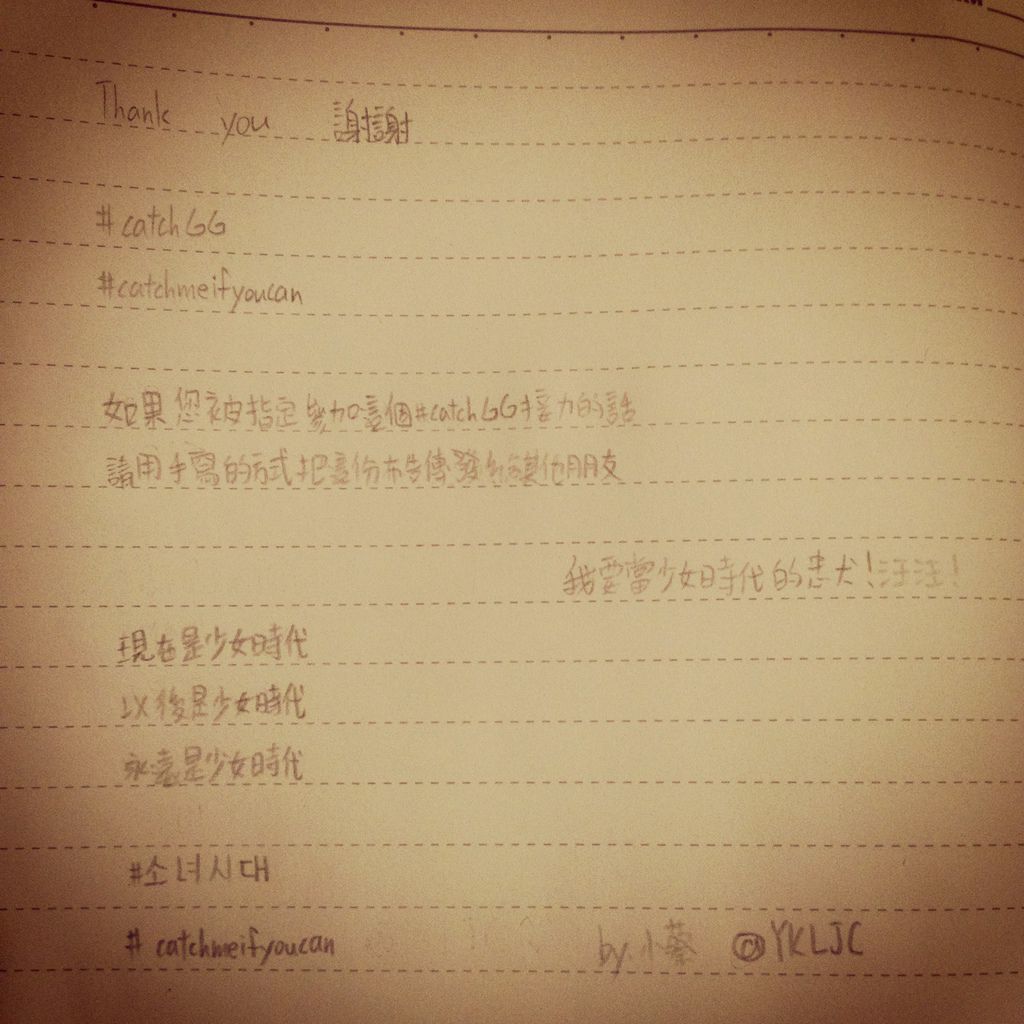 Thank you 謝謝
#catchGG
#catchmeifyoucan
如果您被指定參加這個#catchGG接力的話
請用手寫的方式把這份布告傳發給其他朋友
我要當少女時代的忠犬!汪汪!
現在是少女時代
以後是少女時代
永遠是少女時代
#소녀시대
#catchmeifyoucan
by.小蔡 @YKLJC